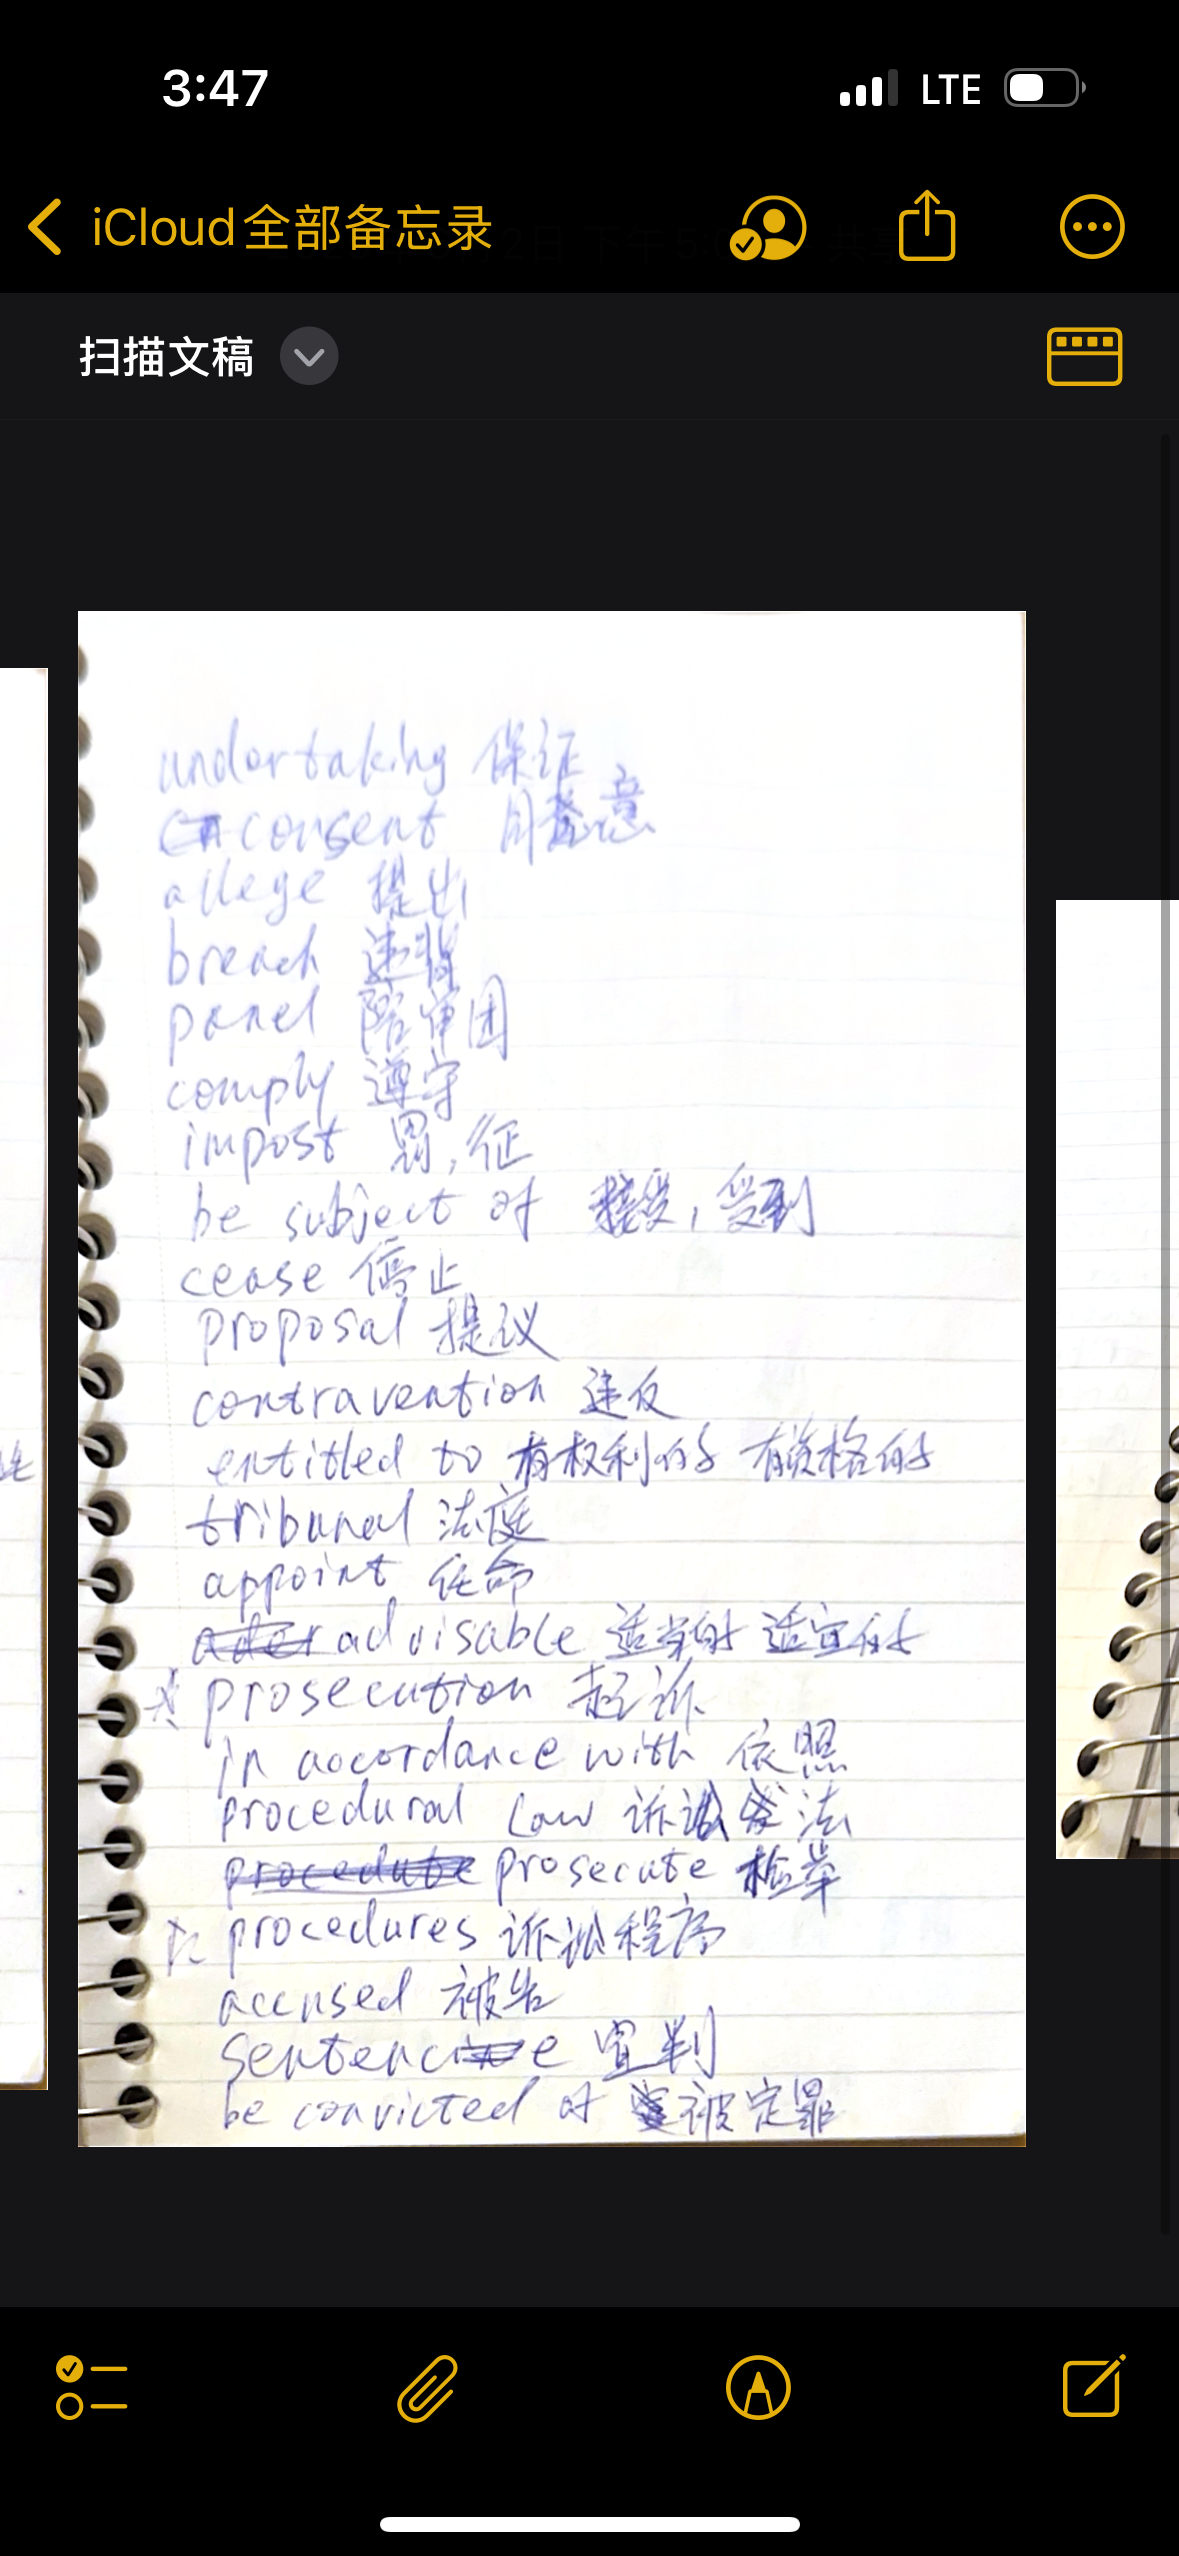 3:47
LTE
iCloud全部备忘录
扫描文稿
undertaking 保证
consent 同意
allege 提出
breach 违背
panel 陪审团
comply 遵守
impost 罚,征
be subject of 接受,受到
cease 停止
proposal 提议
contravention 违反
entitled to 有权利的 有资格的
tribunal 法庭
appoint 任命
advisable 适当的 适宜的
prosecution 起诉
in accordance with 依照
procedural law 诉讼法
procedute prosecute 检举
procedures 诉讼程序
accused 被告
sentence 宣判
be convicted of 被定罪